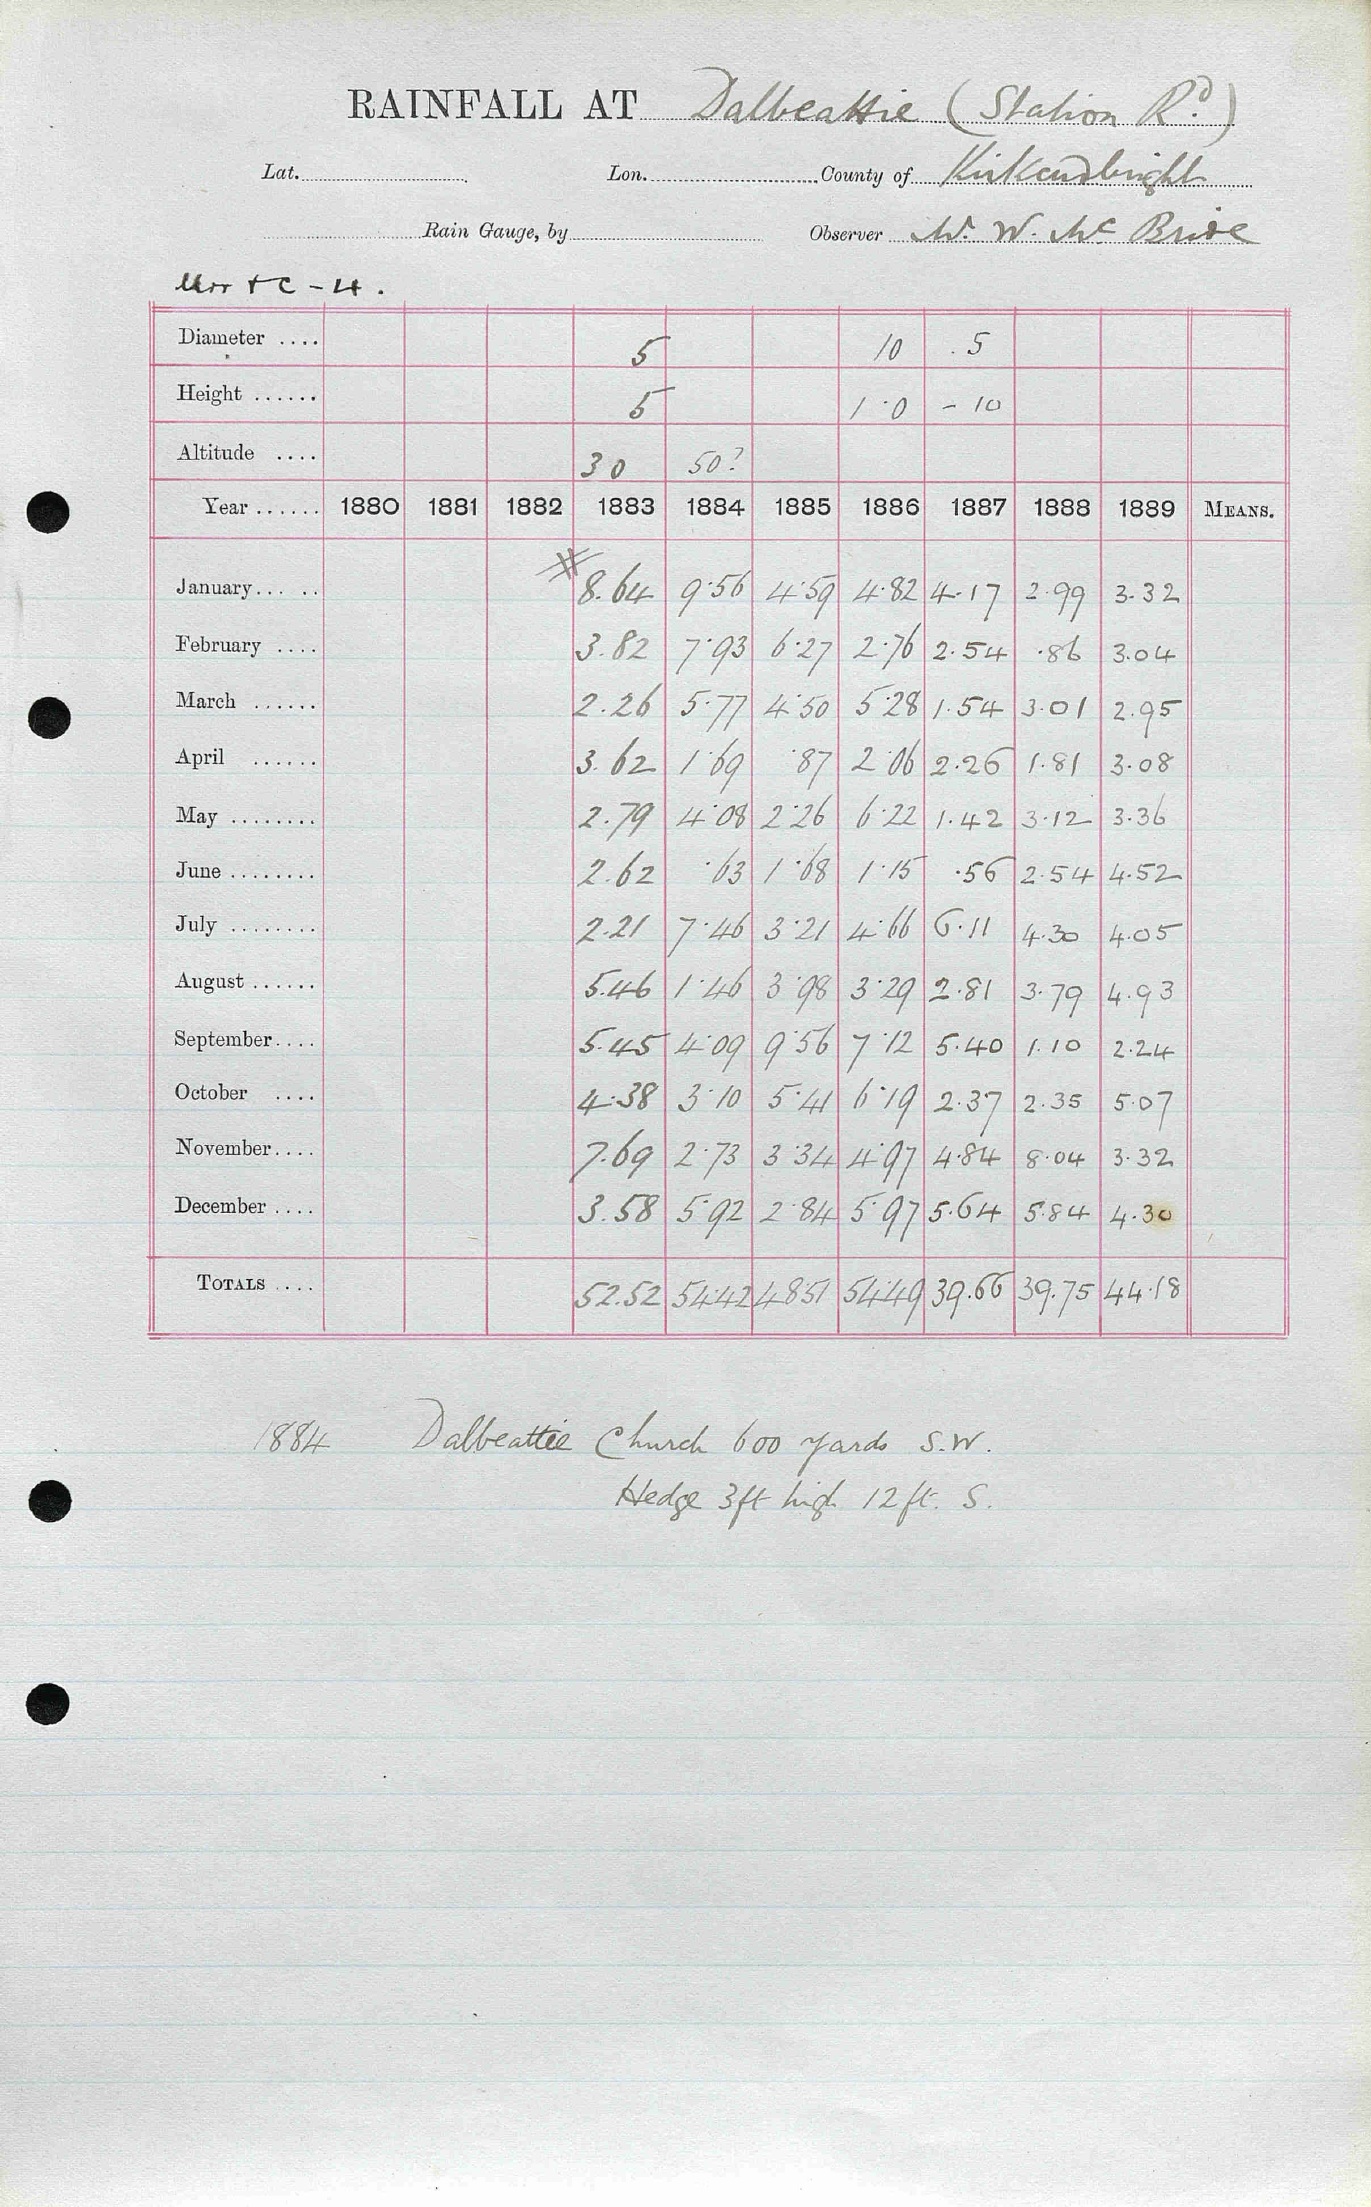 RAINFALL AT Dalbeattie (Station Rd.)
Lat. Lon. County of Kirkcudbright
Rain Gauge, by Observer Mr. W. Mc Bride
+ C - 4.
Diameter .... 5 10 5
Height ...... 5 1·0 - 10
Altitude .... 30 50?
Year ...... 1880 1881 1882 1883 1884 1885 1886 1887 1888 1889 MEANS.
January... .. 8.64 9·56 4·59 4·82 4·17 2·99 3·32
February .... 3.82 7·93 6·27 2·76 2·54 ·86 3·04
March ...... 2.26 5·77 4·50 5·28 1·54 3·01 2·95
April ...... 3.62 1·69 ·87 2·06 2·26 1·81 3·08
May ........ 2.79 4·08 2·26 6·22 1·42 3·12 3·36
June ........ 2.62 ·63 1·68 1·15 ·56 2·54 4·52
July ........ 2.21 7·46 3·21 4·66 6·11 4·30 4·05
August ...... 5.46 1·46 3·98 3·29 2·81 3·79 4·93
September.... 5.45 4·09 9·56 7·12 5·40 1·10 2·24
October .... 4.38 3·10 5·41 6·19 2·37 2·35 5·07
November.... 7.69 2·73 3·34 4·97 4·84 8·04 3·32
December .... 3.58 5·92 2·84 5·97 5·64 5·84 4·30
TOTALS .... 52.52 54·42 48·51 54·49 39·66 39·75 44·18
1884 Dalbeattie Church 600 yards S.W.
Hedge 3ft high 12 ft. S.